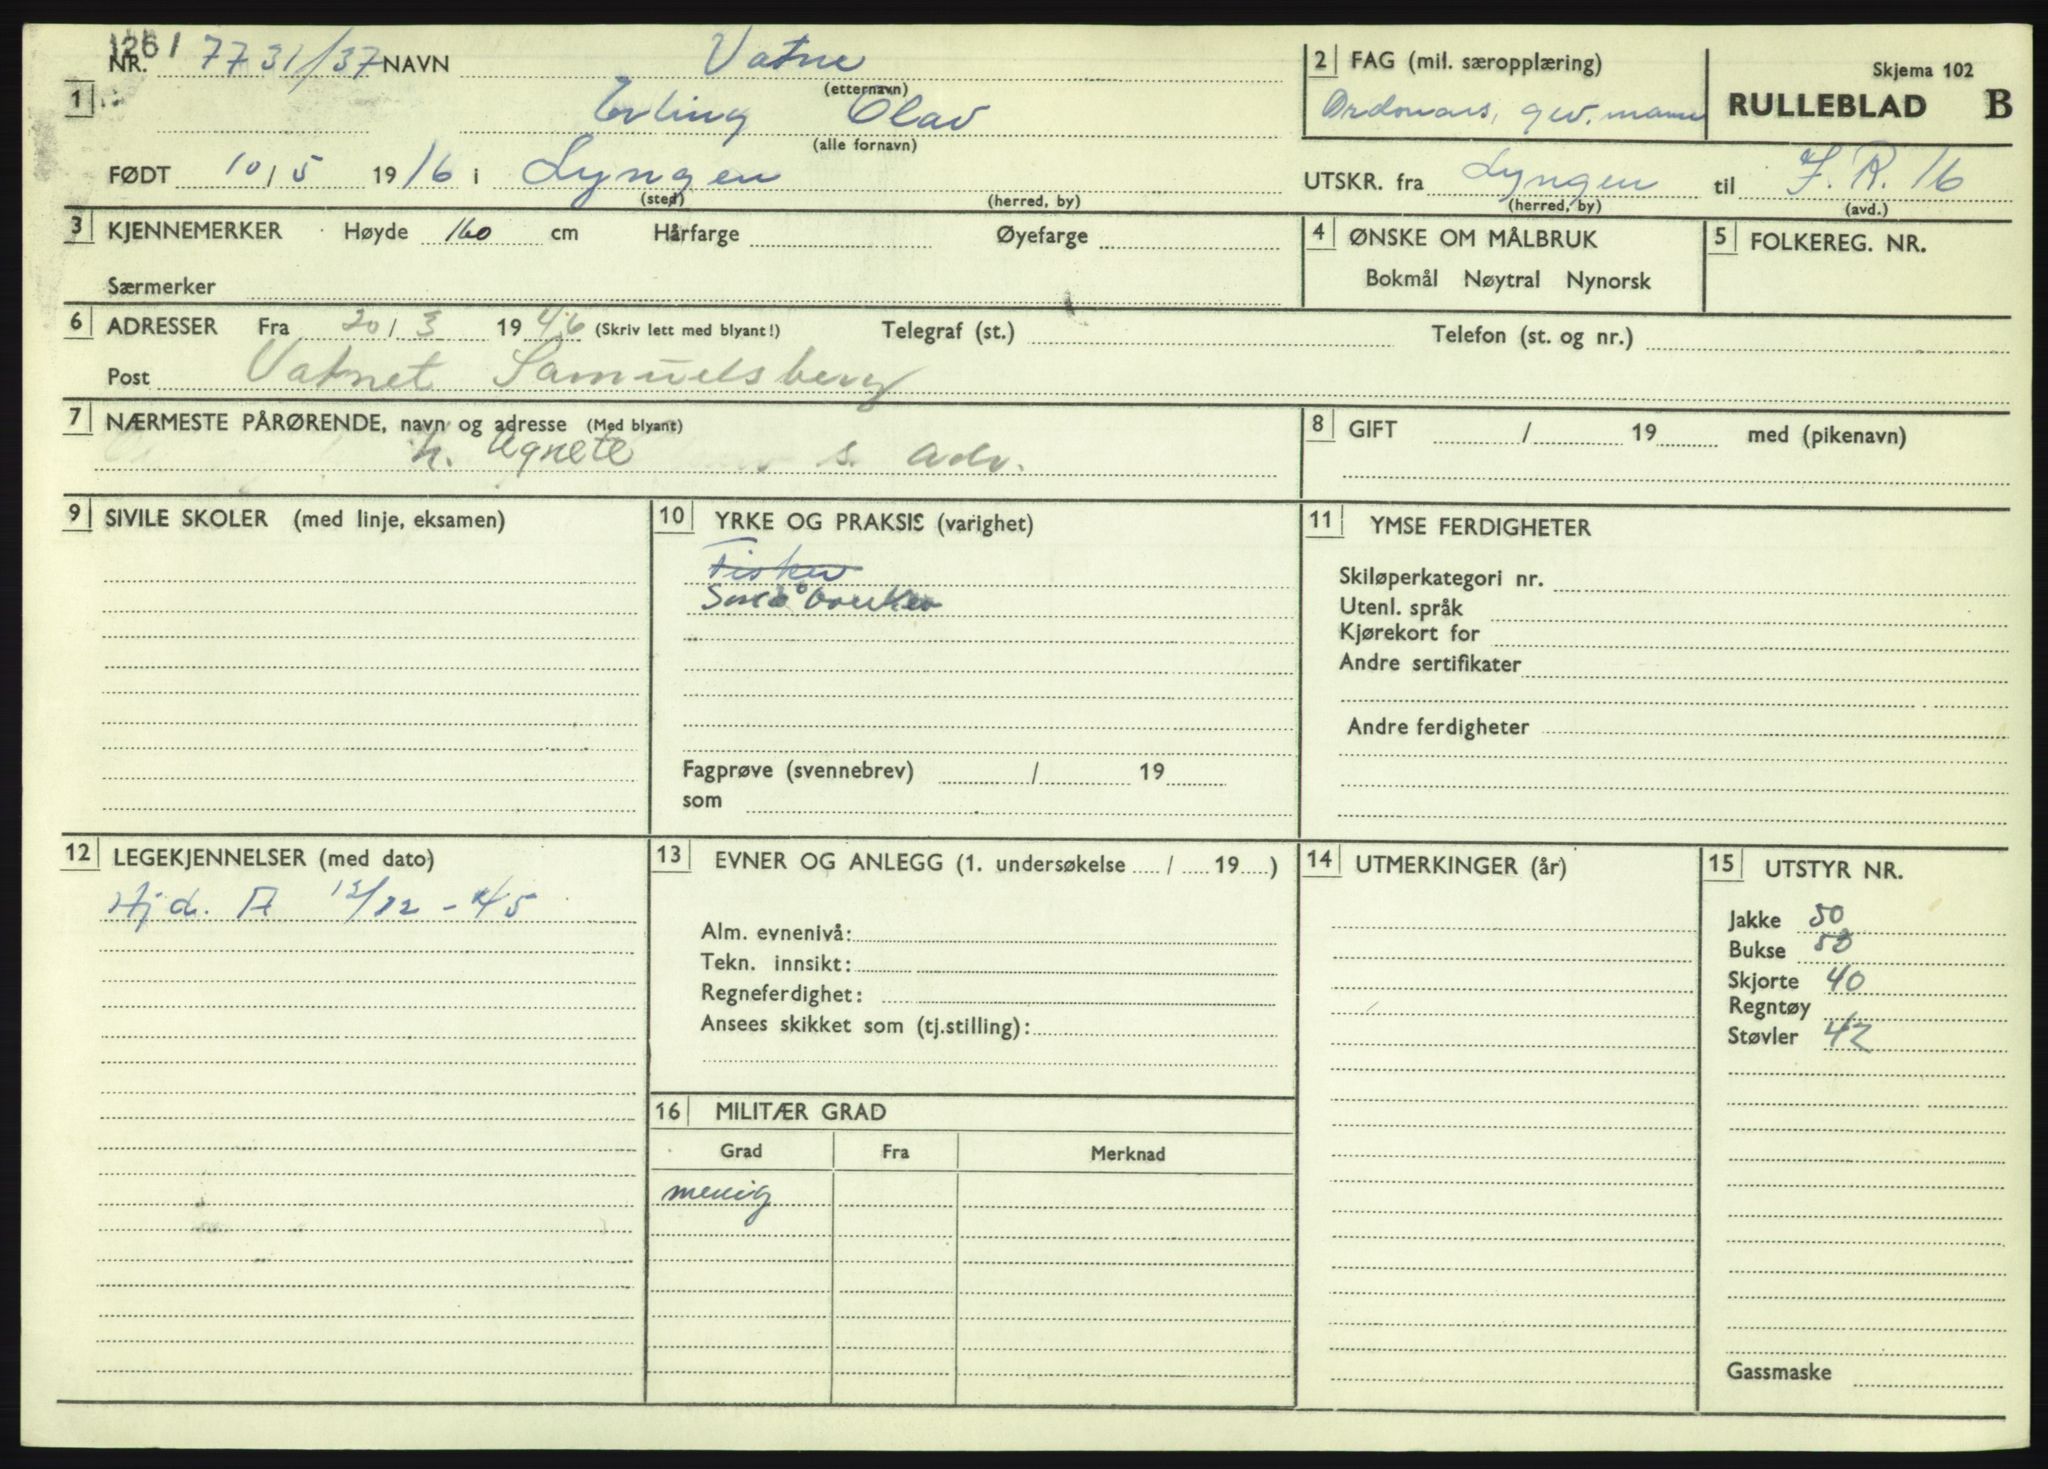 1261
NR. 7731/37 NAVN Vatne
(etternavn)
2 FAG (mil. særopplæring)
Skjema 102
1 Erling Olav
(alle fornavn)
Ordonans, gev.mann
RULLEBLAD B
FØDT 10/5 1916 i Lyngen
(sted) (herred, by)
UTSKR. fra Lyngen til I.R. 16
(herred, by) (avd.)
3 KJENNEMERKER Høyde 160 cm Hårfarge Øyefarge
4 ØNSKE OM MÅLBRUK
5 FOLKEREG. NR.
Særmerker
Bokmål Nøytral Nynorsk
6 ADRESSER Fra 20/3 1946 (Skriv lett med blyant!) Telegraf (st.) Telefon (st. og nr.)
Post Vatnet Samuelsberg
7 NÆRMESTE PÅRØRENDE, navn og adresse (Med blyant)
h. Agnete s. adr.
8 GIFT / 19 med (pikenavn)
9 SIVILE SKOLER (med linje, eksamen)
10 YRKE OG PRAKSIS (varighet)
Fisker
Småbruker
Fagprøve (svennebrev) / 19
som
11 YMSE FERDIGHETER
Skiløperkategori nr.
Utenl. språk
Kjørekort for
Andre sertifikater
Andre ferdigheter
12 LEGEKJENNELSER (med dato)
Hjd. A 12/12-45
13 EVNER OG ANLEGG (1. undersøkelse / 19 )
Alm. evnenivå:
Tekn. innsikt:
Regneferdighet:
Ansees skikket som (tj.stilling):
14 UTMERKINGER (år)
15 UTSTYR NR.
Jakke 50
Bukse 50
Skjorte 40
Regntøy
Støvler 42
Gassmaske
16 MILITÆR GRAD
Grad Fra Merknad
menig